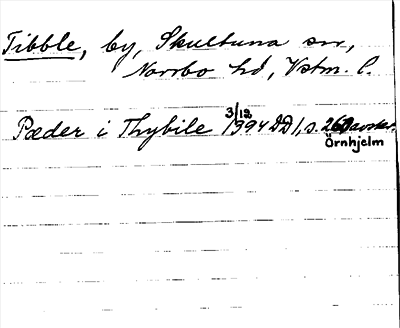 Tibble, by, Skultuna sn,
Norrbo hd, Vstm. l.
3/12
Pæder i Thybile 1394 DD 1, s. 260 avskr.
Örnhjelm